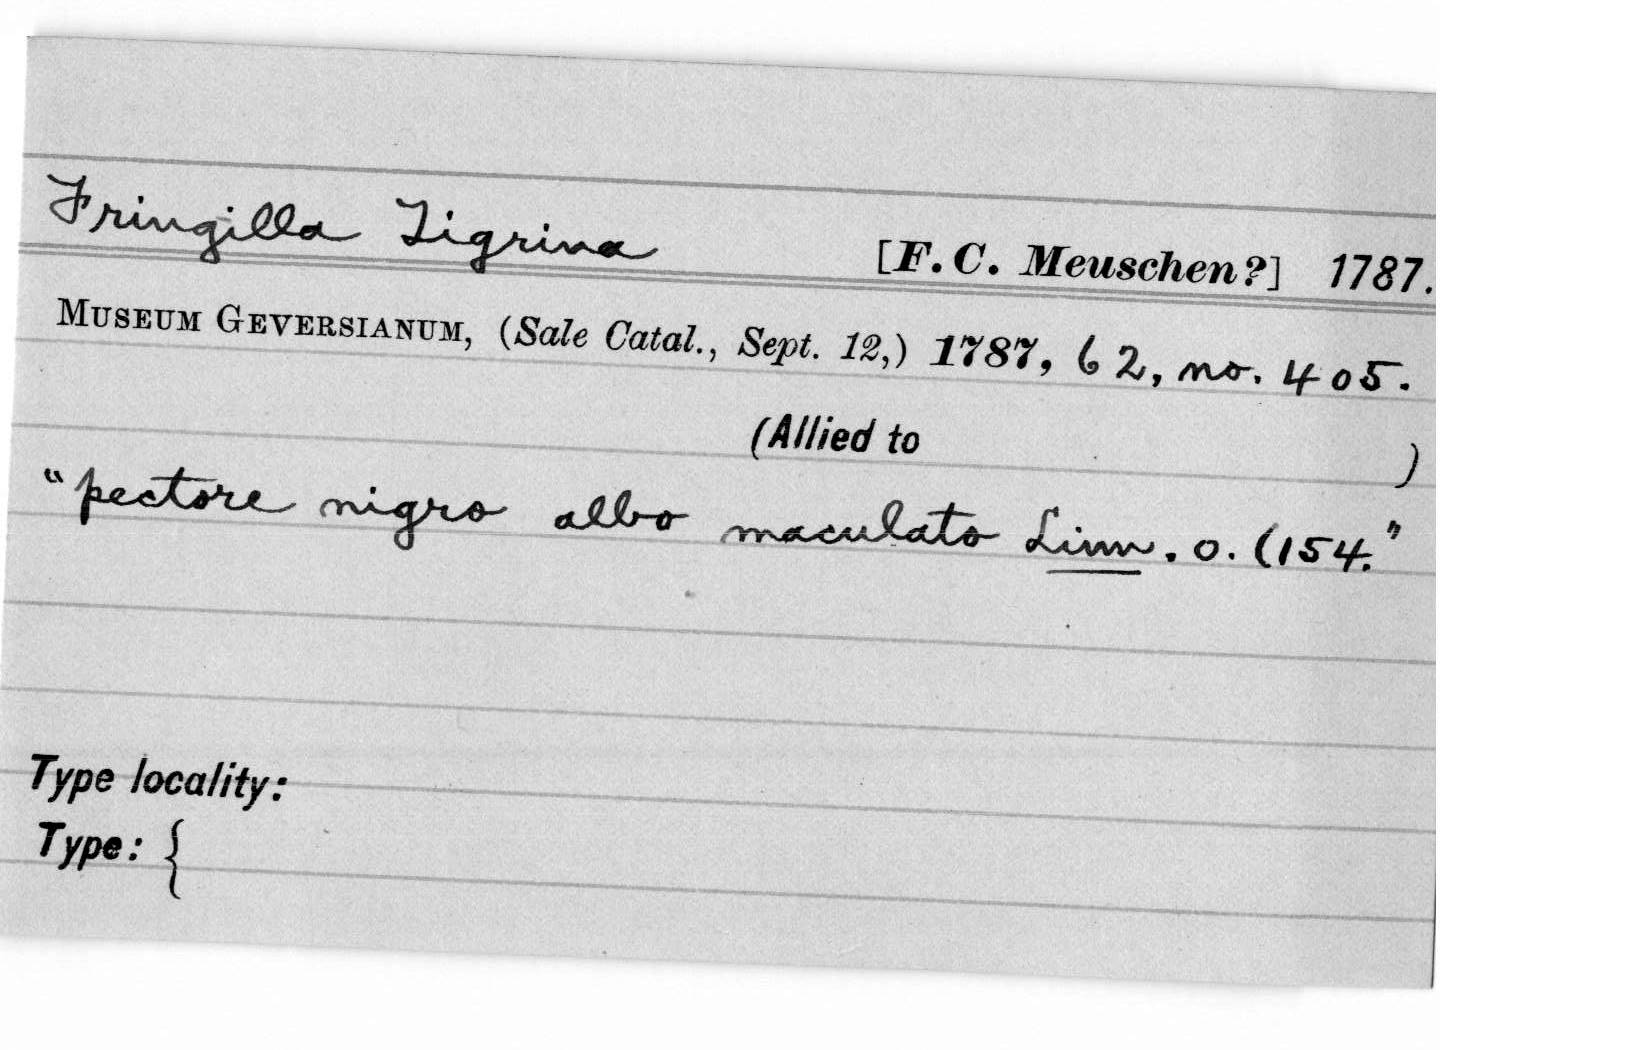 Fringilla Tigrina [F. C. Meuschen?] 1787.
MUSEUM GEVERSIANUM, (Sale Catal., Sept. 12,) 1787, 62, no. 405.
(Allied to )
"pectore nigro albo maculato Linn. o. (154."
Type locality:
Type: {